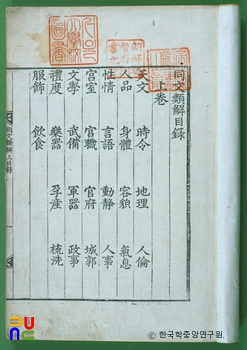 同文類解目錄
上卷
天文 時令 地理 人倫
人品 身體 容貌 氣息
性情 言語 動靜 人事
宮室 官職 官府 城郭
文學 武備 軍器 政事
禮度 樂器 孕產 梳洗
服飾 飲食
© 한국학중앙연구원